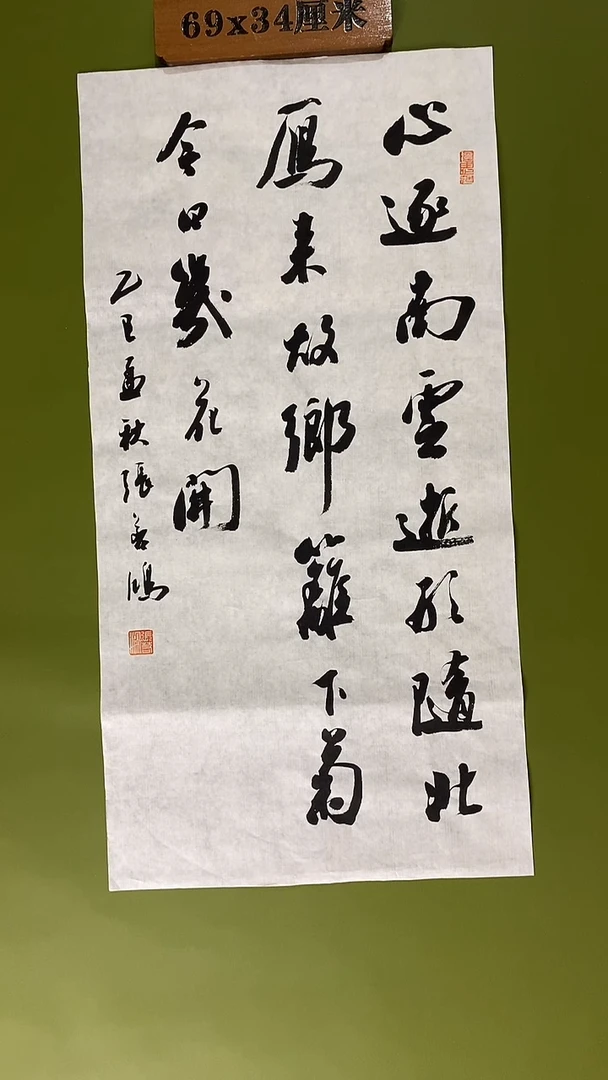 69x34厘米
心逐南雲逝形隨北
雁来故鄉籬下菊
今日幾花開
乙巳孟秋張善鴻